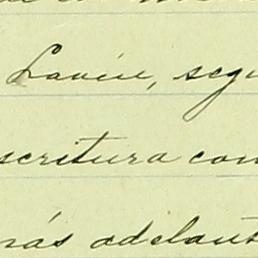 Lavin, segu
scritura con
más adelant